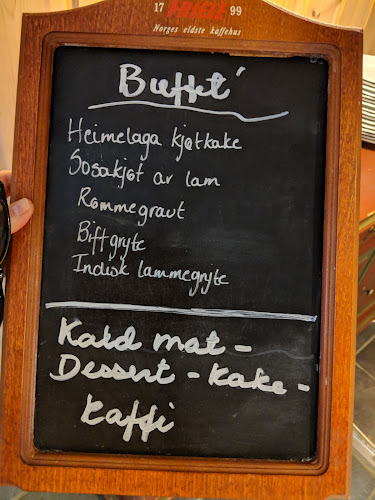 17 FRIELE 99
Norges eldste kaffehus
Buffét
Heimelaga kjøtkake
Sosakjøt av lam
Rømmegraut
Biffgryte
Indisk lammegryte
Kald mat -
Dessert - kake -
kaffi